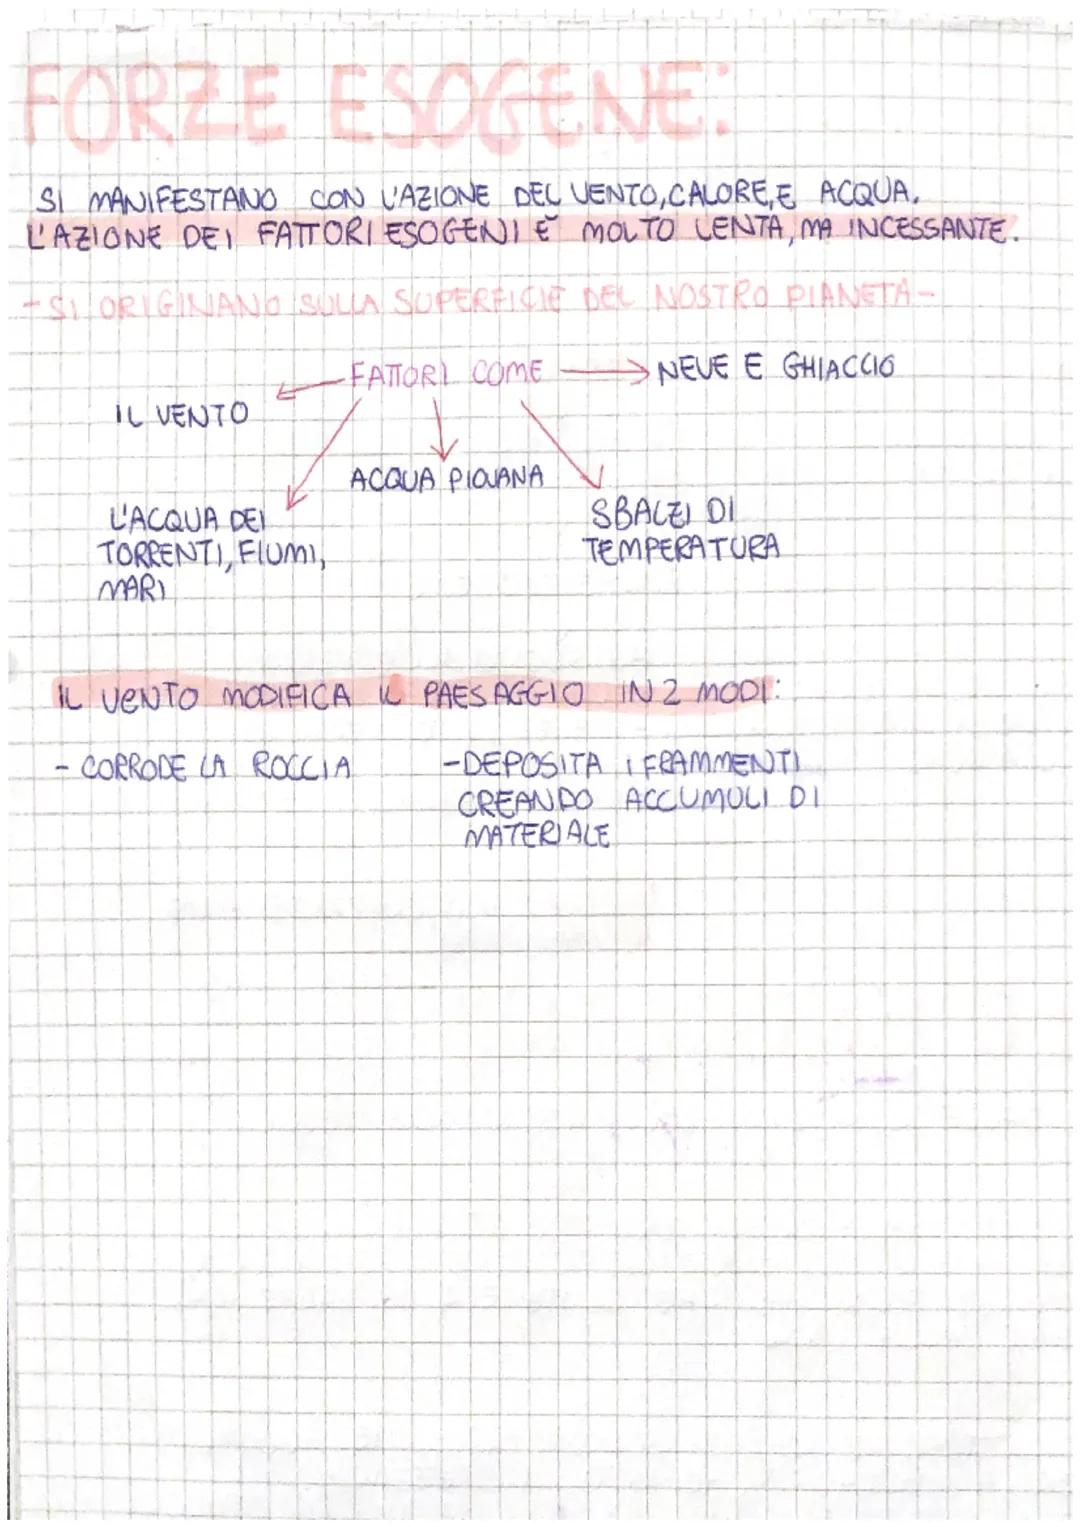 FORZE ESOGENE:
SI MANIFESTANO CON L'AZIONE DEL VENTO, CALORE, E ACQUA.
L'AZIONE DEI FATTORI ESOGENI È MOLTO LENTA, MA INCESSANTE.
-SI ORIGINANO SULLA SUPERFICIE DEL NOSTRO PIANETA-
FATTORI COME
NEVE E GHIACCIO
IL VENTO
ACQUA PIOVANA
L'ACQUA DEI
TORRENTI, FIUMI,
MARI
SBALZI DI
TEMPERATURA
IL VENTO MODIFICA IL PAESAGGIO IN 2 MODI:
- CORRODE LA ROCCIA
-DEPOSITA I FRAMMENTI
CREANDO ACCUMULI DI
MATERIALE